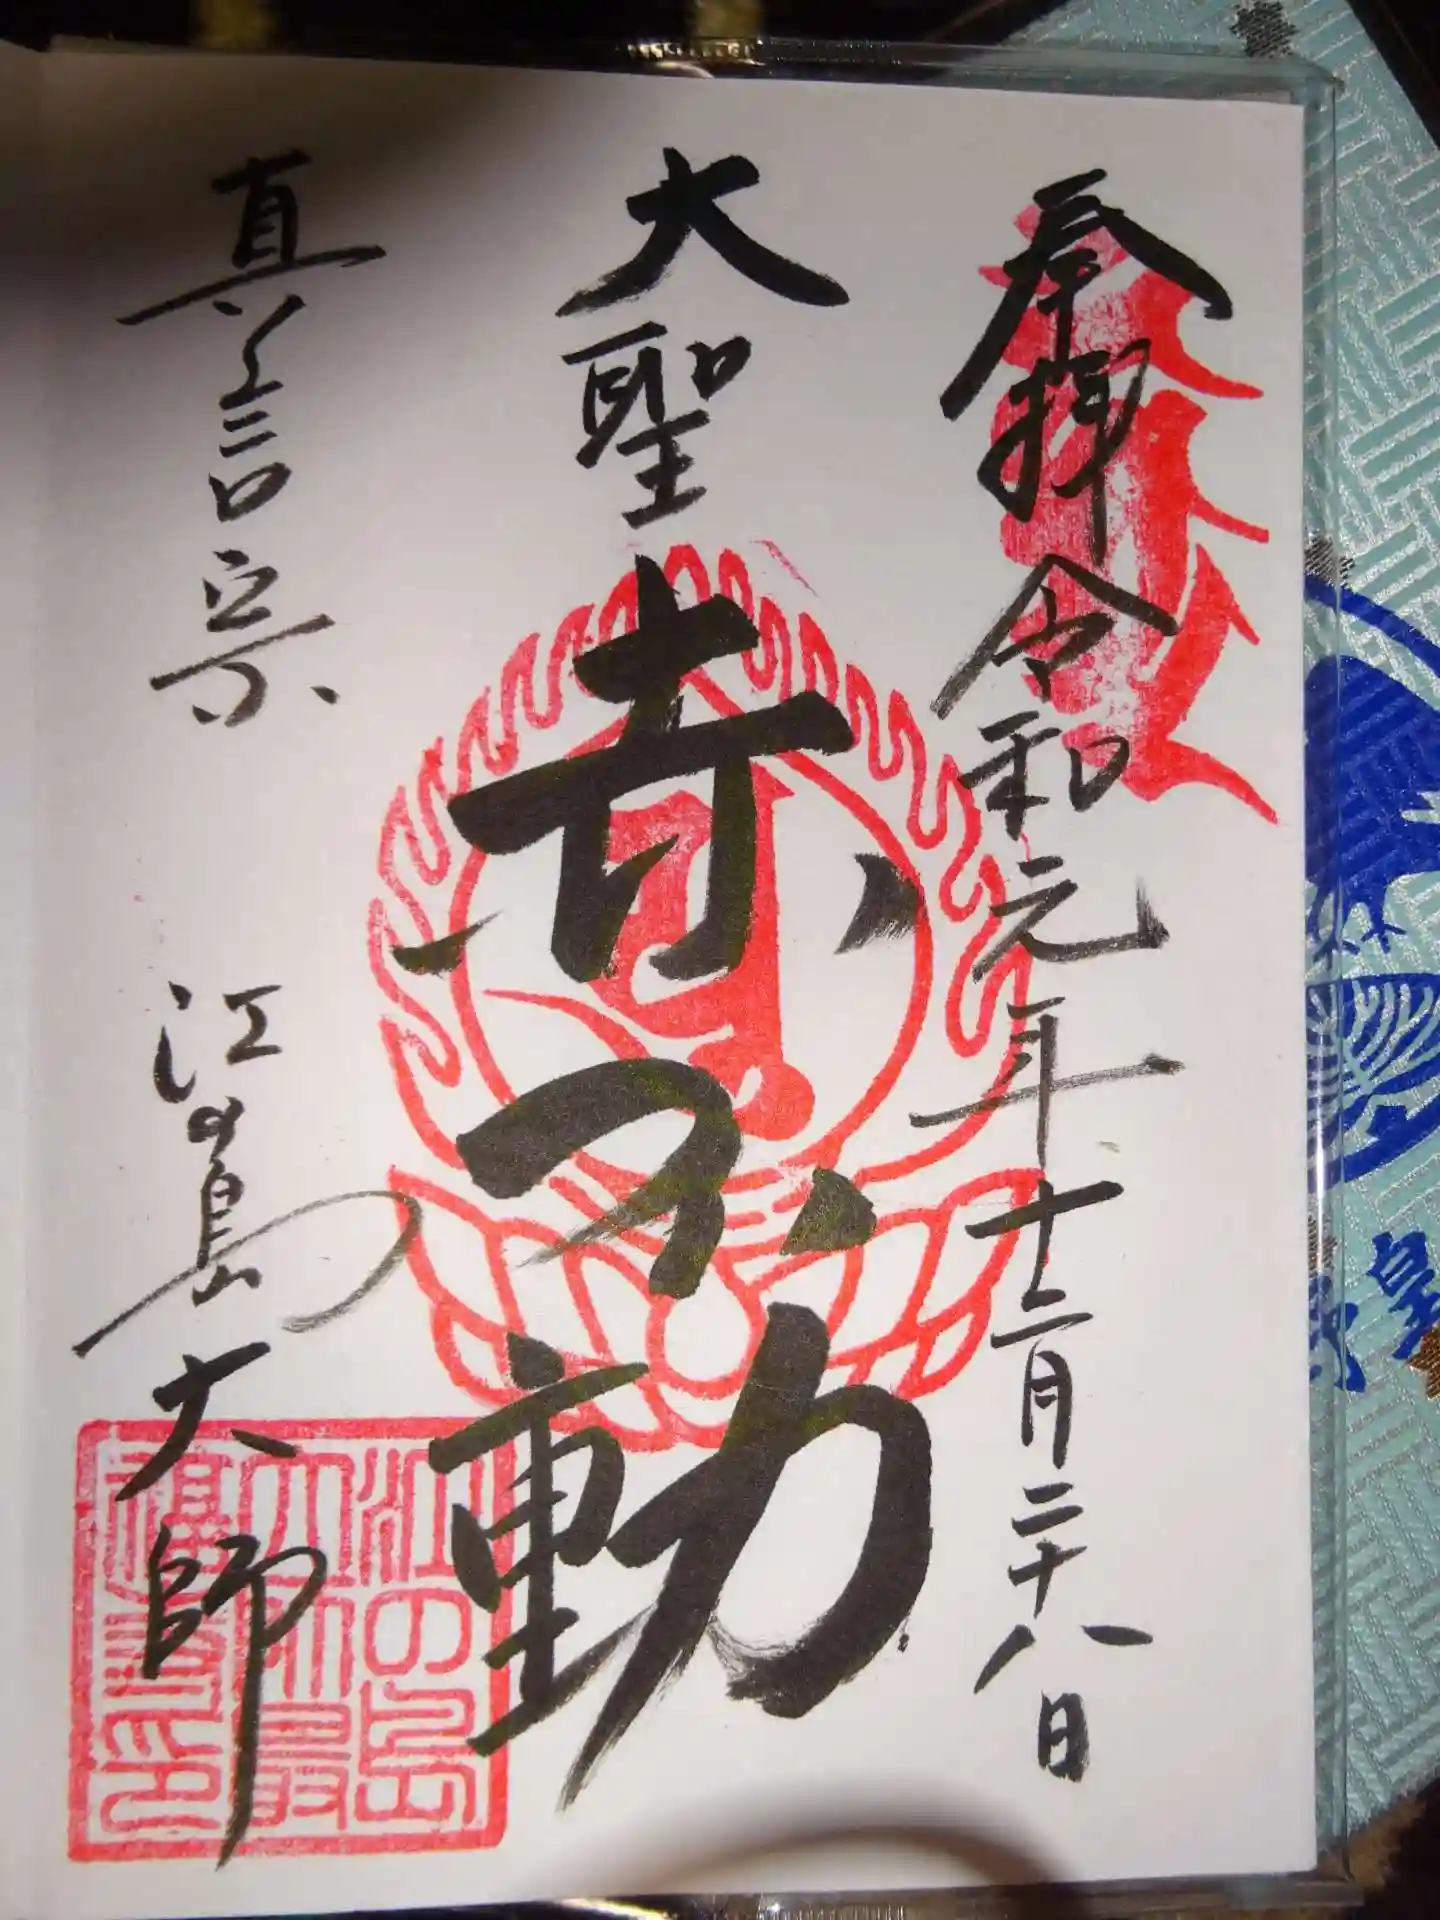 奉拝 令和元年十二月二十八日
大聖 赤不動
真言宗 江の島大師
江の島
大師最
福寺印